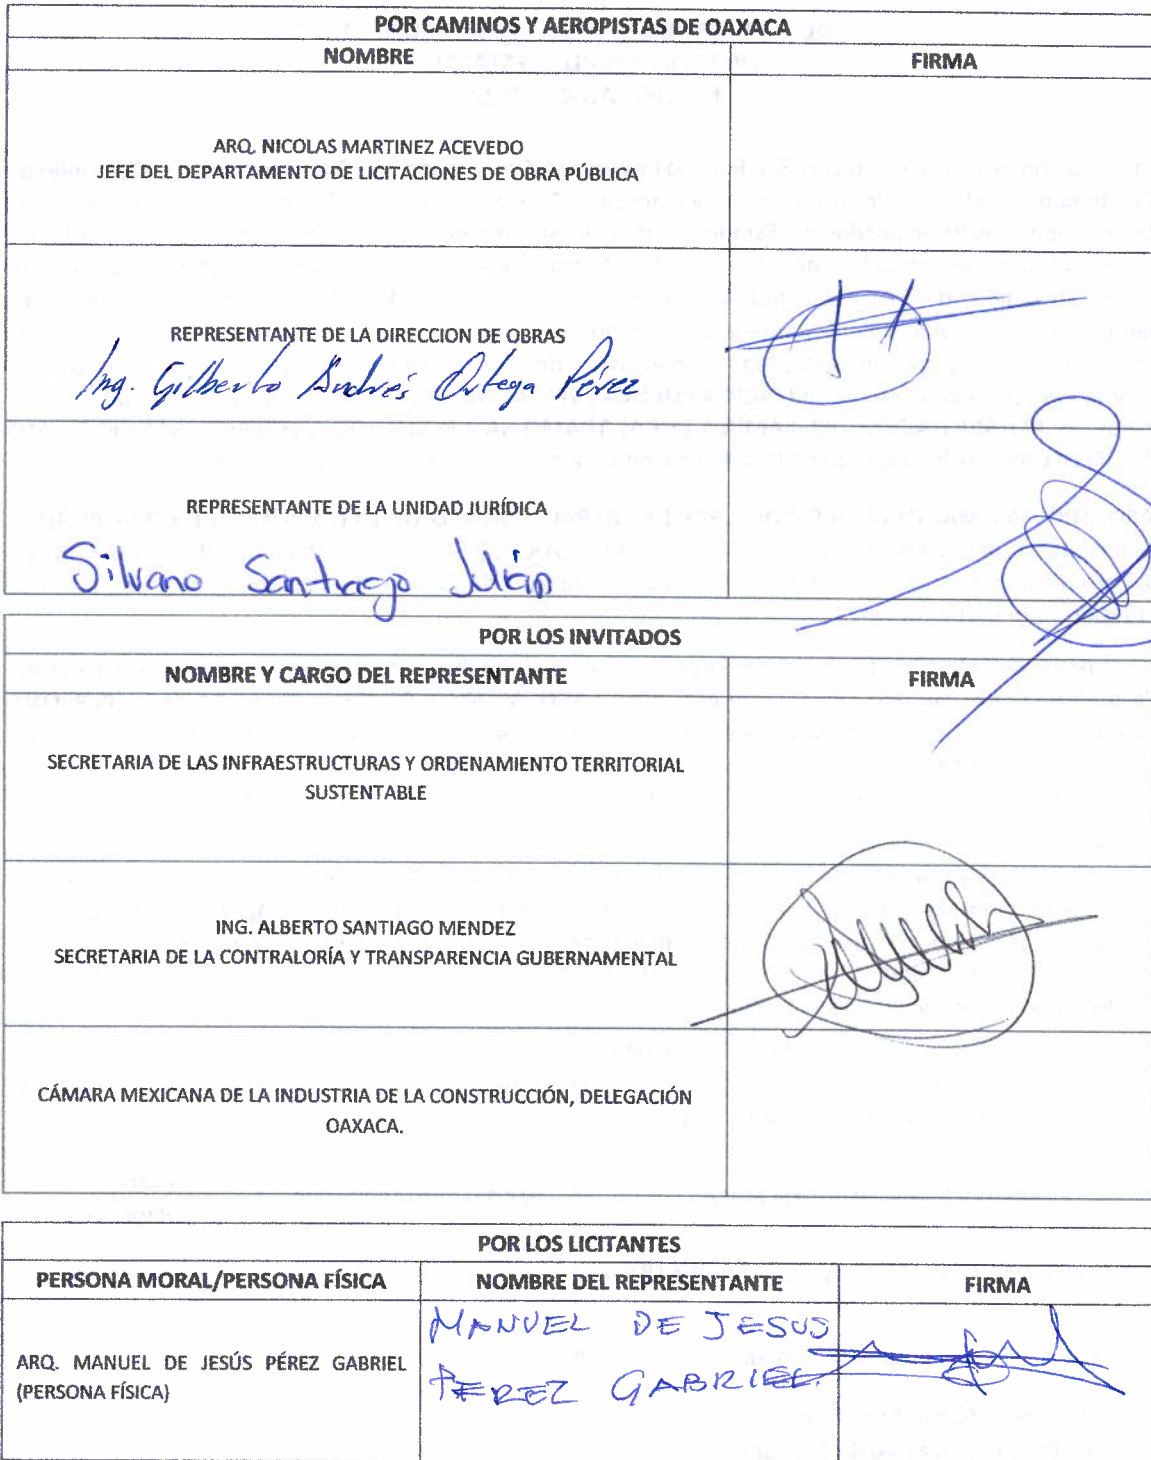 POR CAMINOS Y AEROPISTAS DE OAXACA
NOMBRE FIRMA
ARQ. NICOLAS MARTINEZ ACEVEDO
JEFE DEL DEPARTAMENTO DE LICITACIONES DE OBRA PÚBLICA
REPRESENTANTE DE LA DIRECCION DE OBRAS
Ing. Gilberto Andrés Ortega Pérez
REPRESENTANTE DE LA UNIDAD JURÍDICA
Silvano Santiago Julián
POR LOS INVITADOS
NOMBRE Y CARGO DEL REPRESENTANTE FIRMA
SECRETARIA DE LAS INFRAESTRUCTURAS Y ORDENAMIENTO TERRITORIAL
SUSTENTABLE
ING. ALBERTO SANTIAGO MENDEZ
SECRETARIA DE LA CONTRALORÍA Y TRANSPARENCIA GUBERNAMENTAL
CÁMARA MEXICANA DE LA INDUSTRIA DE LA CONSTRUCCIÓN, DELEGACIÓN
OAXACA.
POR LOS LICITANTES
PERSONA MORAL/PERSONA FÍSICA NOMBRE DEL REPRESENTANTE FIRMA
ARQ. MANUEL DE JESÚS PÉREZ GABRIEL
(PERSONA FÍSICA)
MANUEL DE JESUS
PEREZ GABRIEL.